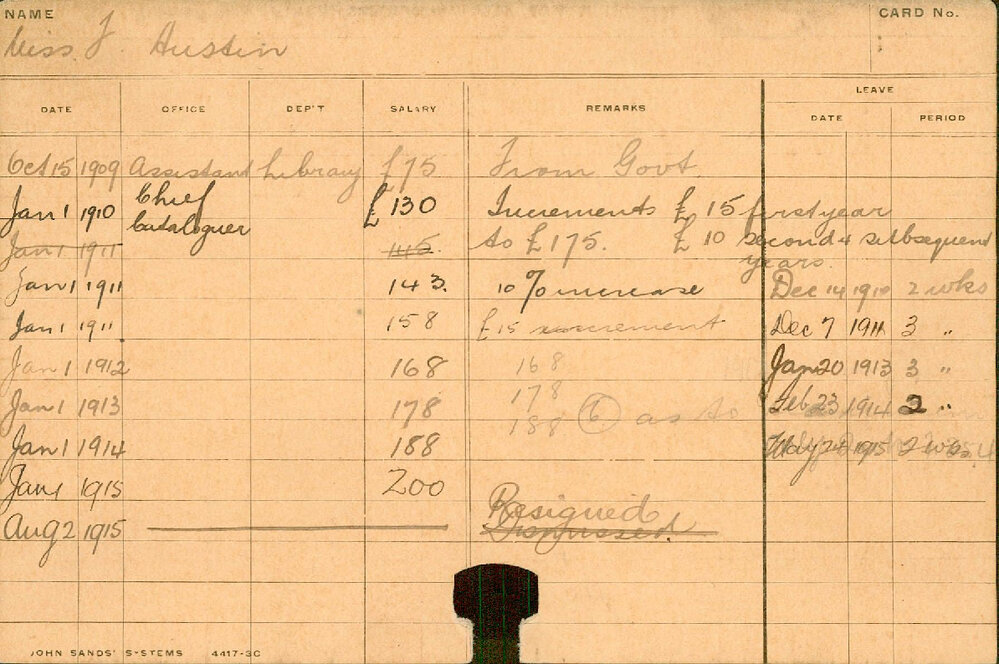 NAME
CARD No.
Miss J. Austin
DATE OFFICE DEP'T SALARY REMARKS LEAVE
DATE PERIOD
Oct 15 1909 Assistant Library £75 From Govt.
Jan 1 1910 Chief £130 Increments £15 first year
Cataloguer
Jan 1 1911 145. to £175. £10 second & subsequent
years.
Jan 1 1911 143. 10% increase Dec 14 1910 2 wks
Jan 1 1911 158 £15 increment Dec 7 1911 3 "
Jan 1 1912 168 168 Jan 20 1913 3 "
Jan 1 1913 178 178 Feb 23 1914 2 "
188 6 as to
Jan 1 1914 188 May 24 1915 2 wks.
Jan 1 1915 200
Resigned
Aug 2 1915 Dismissed.
JOHN SANDS' SYSTEMS 4417-3C